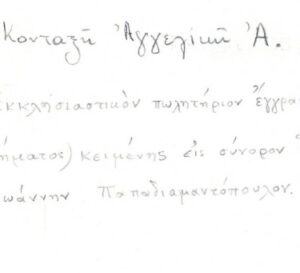 Κονταξῆ Ἀγγελικῆ Ἀ.
κκλησιαστικὸν πωλητήριον ἔγγρα
ήματος) κειμένης εἰς σύνορον
ωάννην Παπαδιαμαντόπουλον.